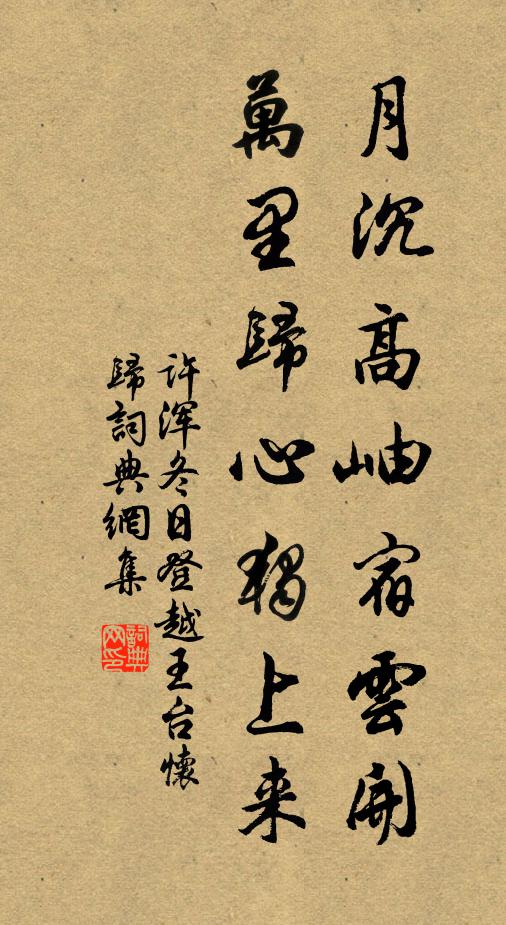 月沉高岫宿雲開
萬里歸心獨上来
許渾冬日登越王台懷
歸詞典網集
詞典网印